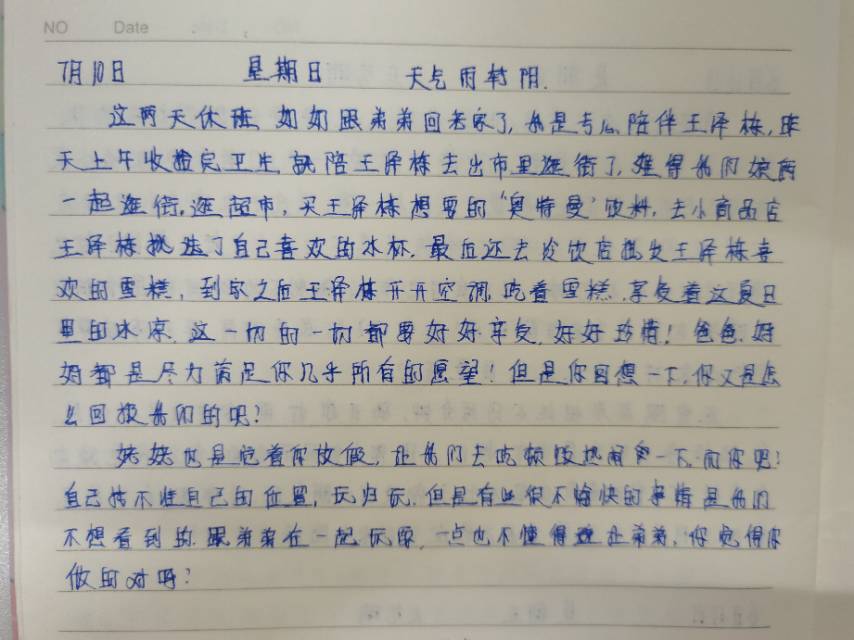 NO Date
7月10日 星期日 天气雨转阴.
这两天休班 如如跟弟弟回老家了,我是专心陪伴王泽栋,昨
天上午收捡完卫生就陪王泽栋去出市里逛街了,难得我们娘两
一起逛街,逛超市,买王泽栋想要的“奥特曼”饮料,去小商品店
王泽栋挑选了自己喜欢的水杯.最后还去冷饮店批发王泽栋喜
欢的雪糕,到家之后王泽栋开开空调,吃着雪糕.享受着这夏日
里的冰凉.这一切的一切都要好好享受.好好珍惜!爸爸.妈
妈都是尽力满足你几乎所有的愿望!但是你回想一下.你又是怎
么回报我们的呢?
姥姥也是说着你放假,让我们去吃顿饭热闹一下.而你呢?
自己找不准自己的位置,玩归玩.但是有些很不愉快的事情是我们
不想看到的.跟弟弟在一起玩耍,一点也不懂得让弟弟,你觉得你
做的对吗?